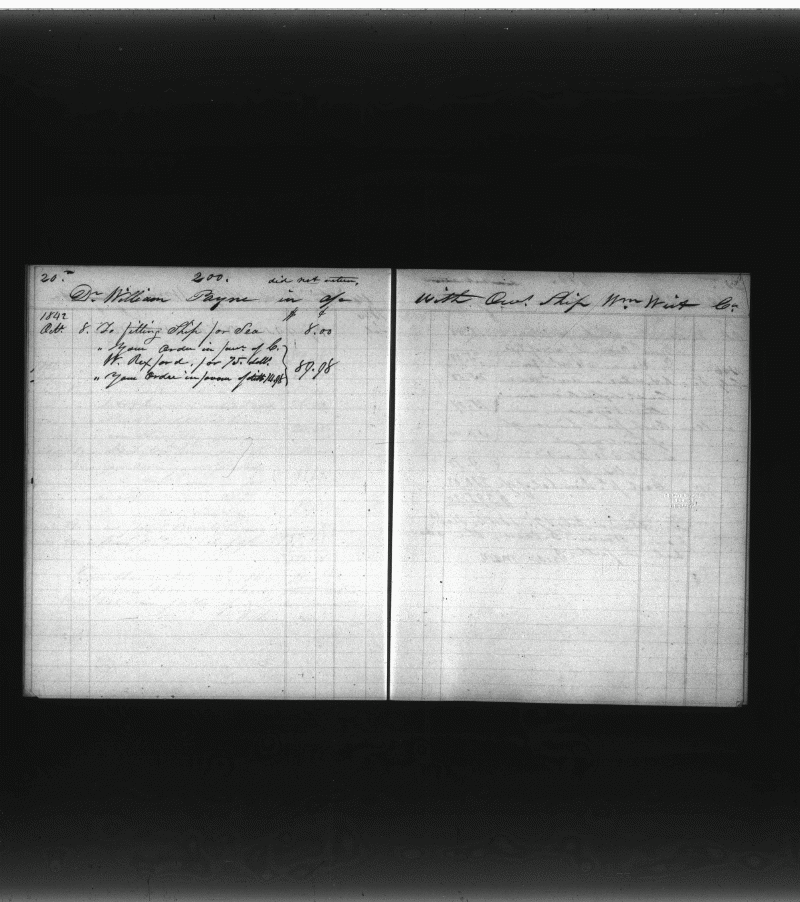 20. 200. did not return.
Dr. William Payne in a/c
With Ows. Ship Wm Wirt Cr.
1842 $ ¢
Oct. 8. To fitting Ship for Sea 8.00
" Your Order in fav. of C.
W. Rexford. for 75. dolls.
" Your Order in favor of ditto 14.98 89.98